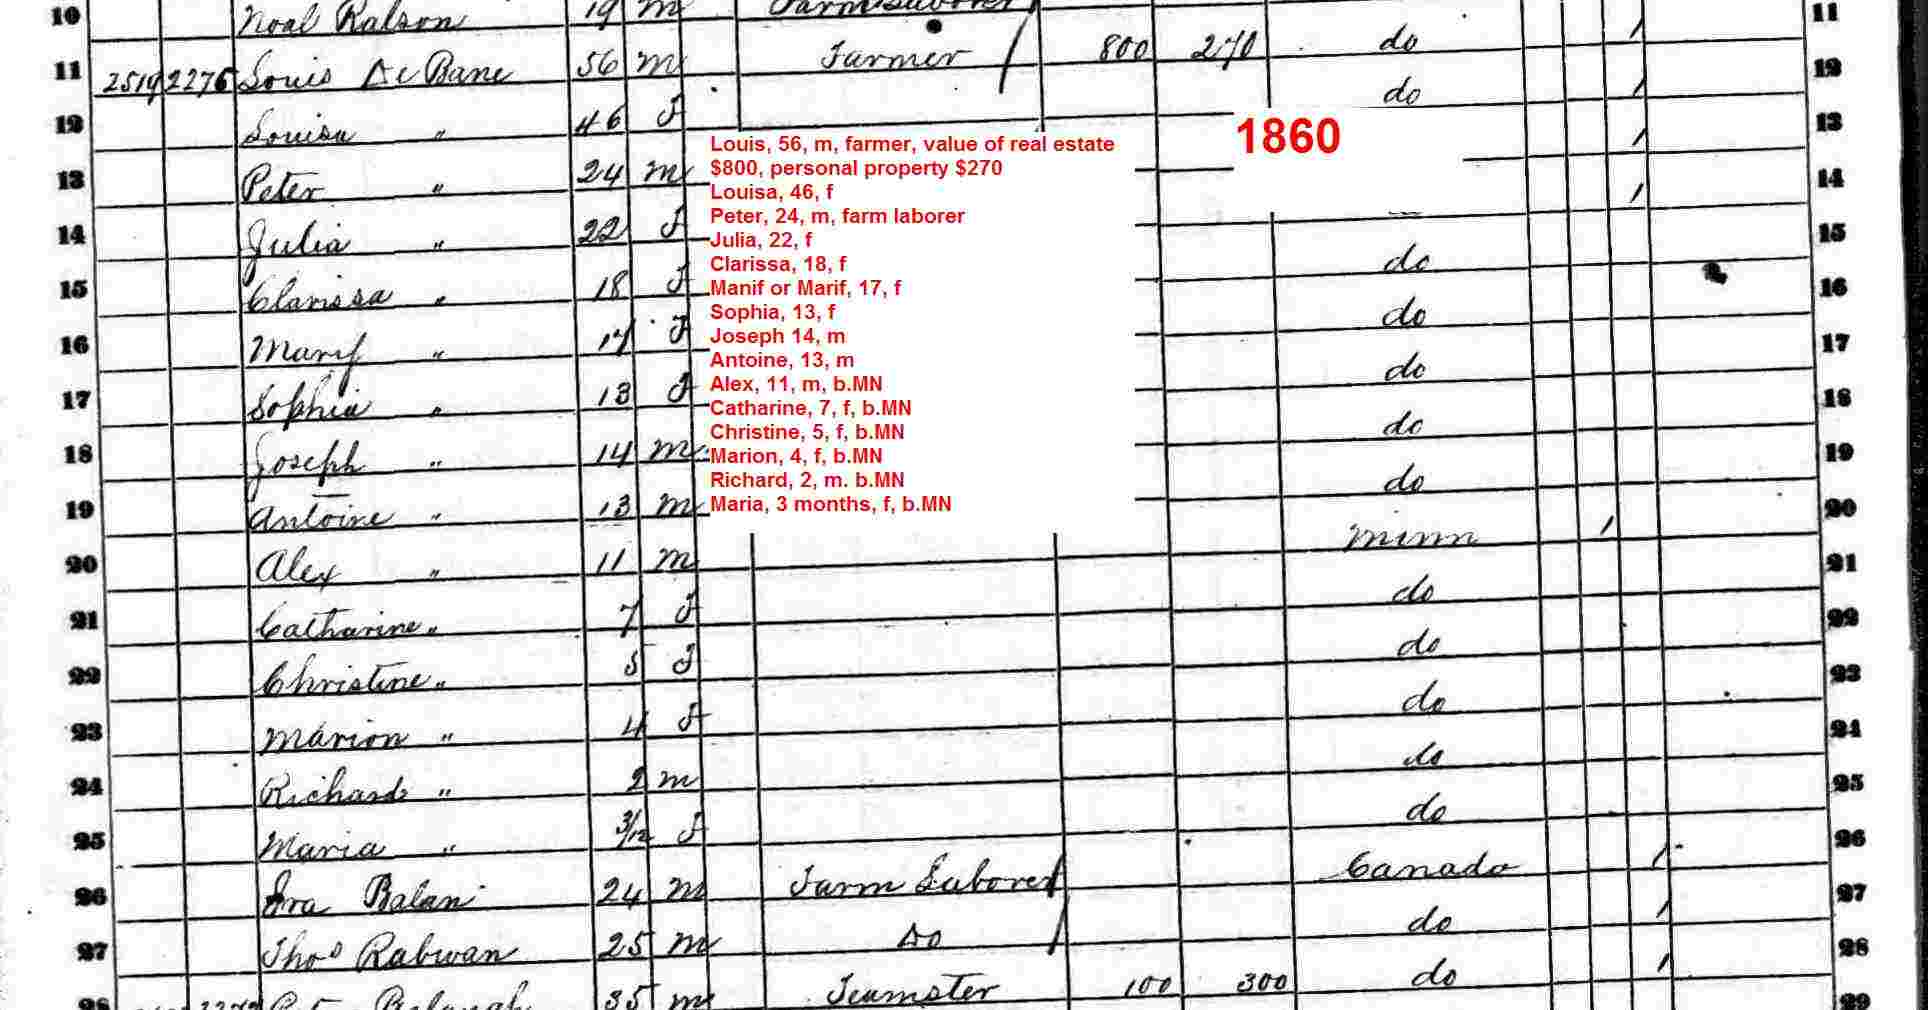 10 Noal Ralson 19 m Farm Laborer 11
11 2519 2276 Louis De Bane 56 m Farmer 800 270 do 12
12 Louisa " 46 f do 13
13 Peter " 24 m 14
14 Julia " 22 f 15
15 Clarissa " 18 f do 16
16 Marif " 17 f do 17
17 Sophia " 13 f do 18
18 Joseph " 14 m do 19
19 Antoine " 13 m do 20
20 Alex " 11 m Minn 21
21 Catharine " 7 f do 22
22 Christine " 5 f do 23
23 Marion " 4 f do 24
24 Richard " 2 m do 25
25 Maria " 3/12 f do 26
26 Balan 24 m Farm Laborer Canado 27
27 Thos Rabwan 25 m Do do 28
28 35 m Teamster 100 300 do 29
1860
Louis, 56, m, farmer, value of real estate
$800, personal property $270
Louisa, 46, f
Peter, 24, m, farm laborer
Julia, 22, f
Clarissa, 18, f
Manif or Marif, 17, f
Sophia, 13, f
Joseph 14, m
Antoine, 13, m
Alex, 11, m, b.MN
Catharine, 7, f, b.MN
Christine, 5, f, b.MN
Marion, 4, f, b.MN
Richard, 2, m. b.MN
Maria, 3 months, f, b.MN